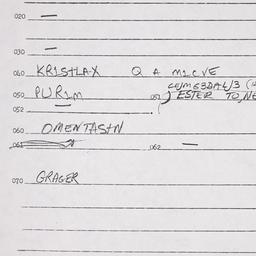 020 —
030 —
040 KRISTLAX Q A MICVE
050 PURIM 051 ESTER TO,NE
052
060 OMENTASIN
061 062 —
070 GRAGER